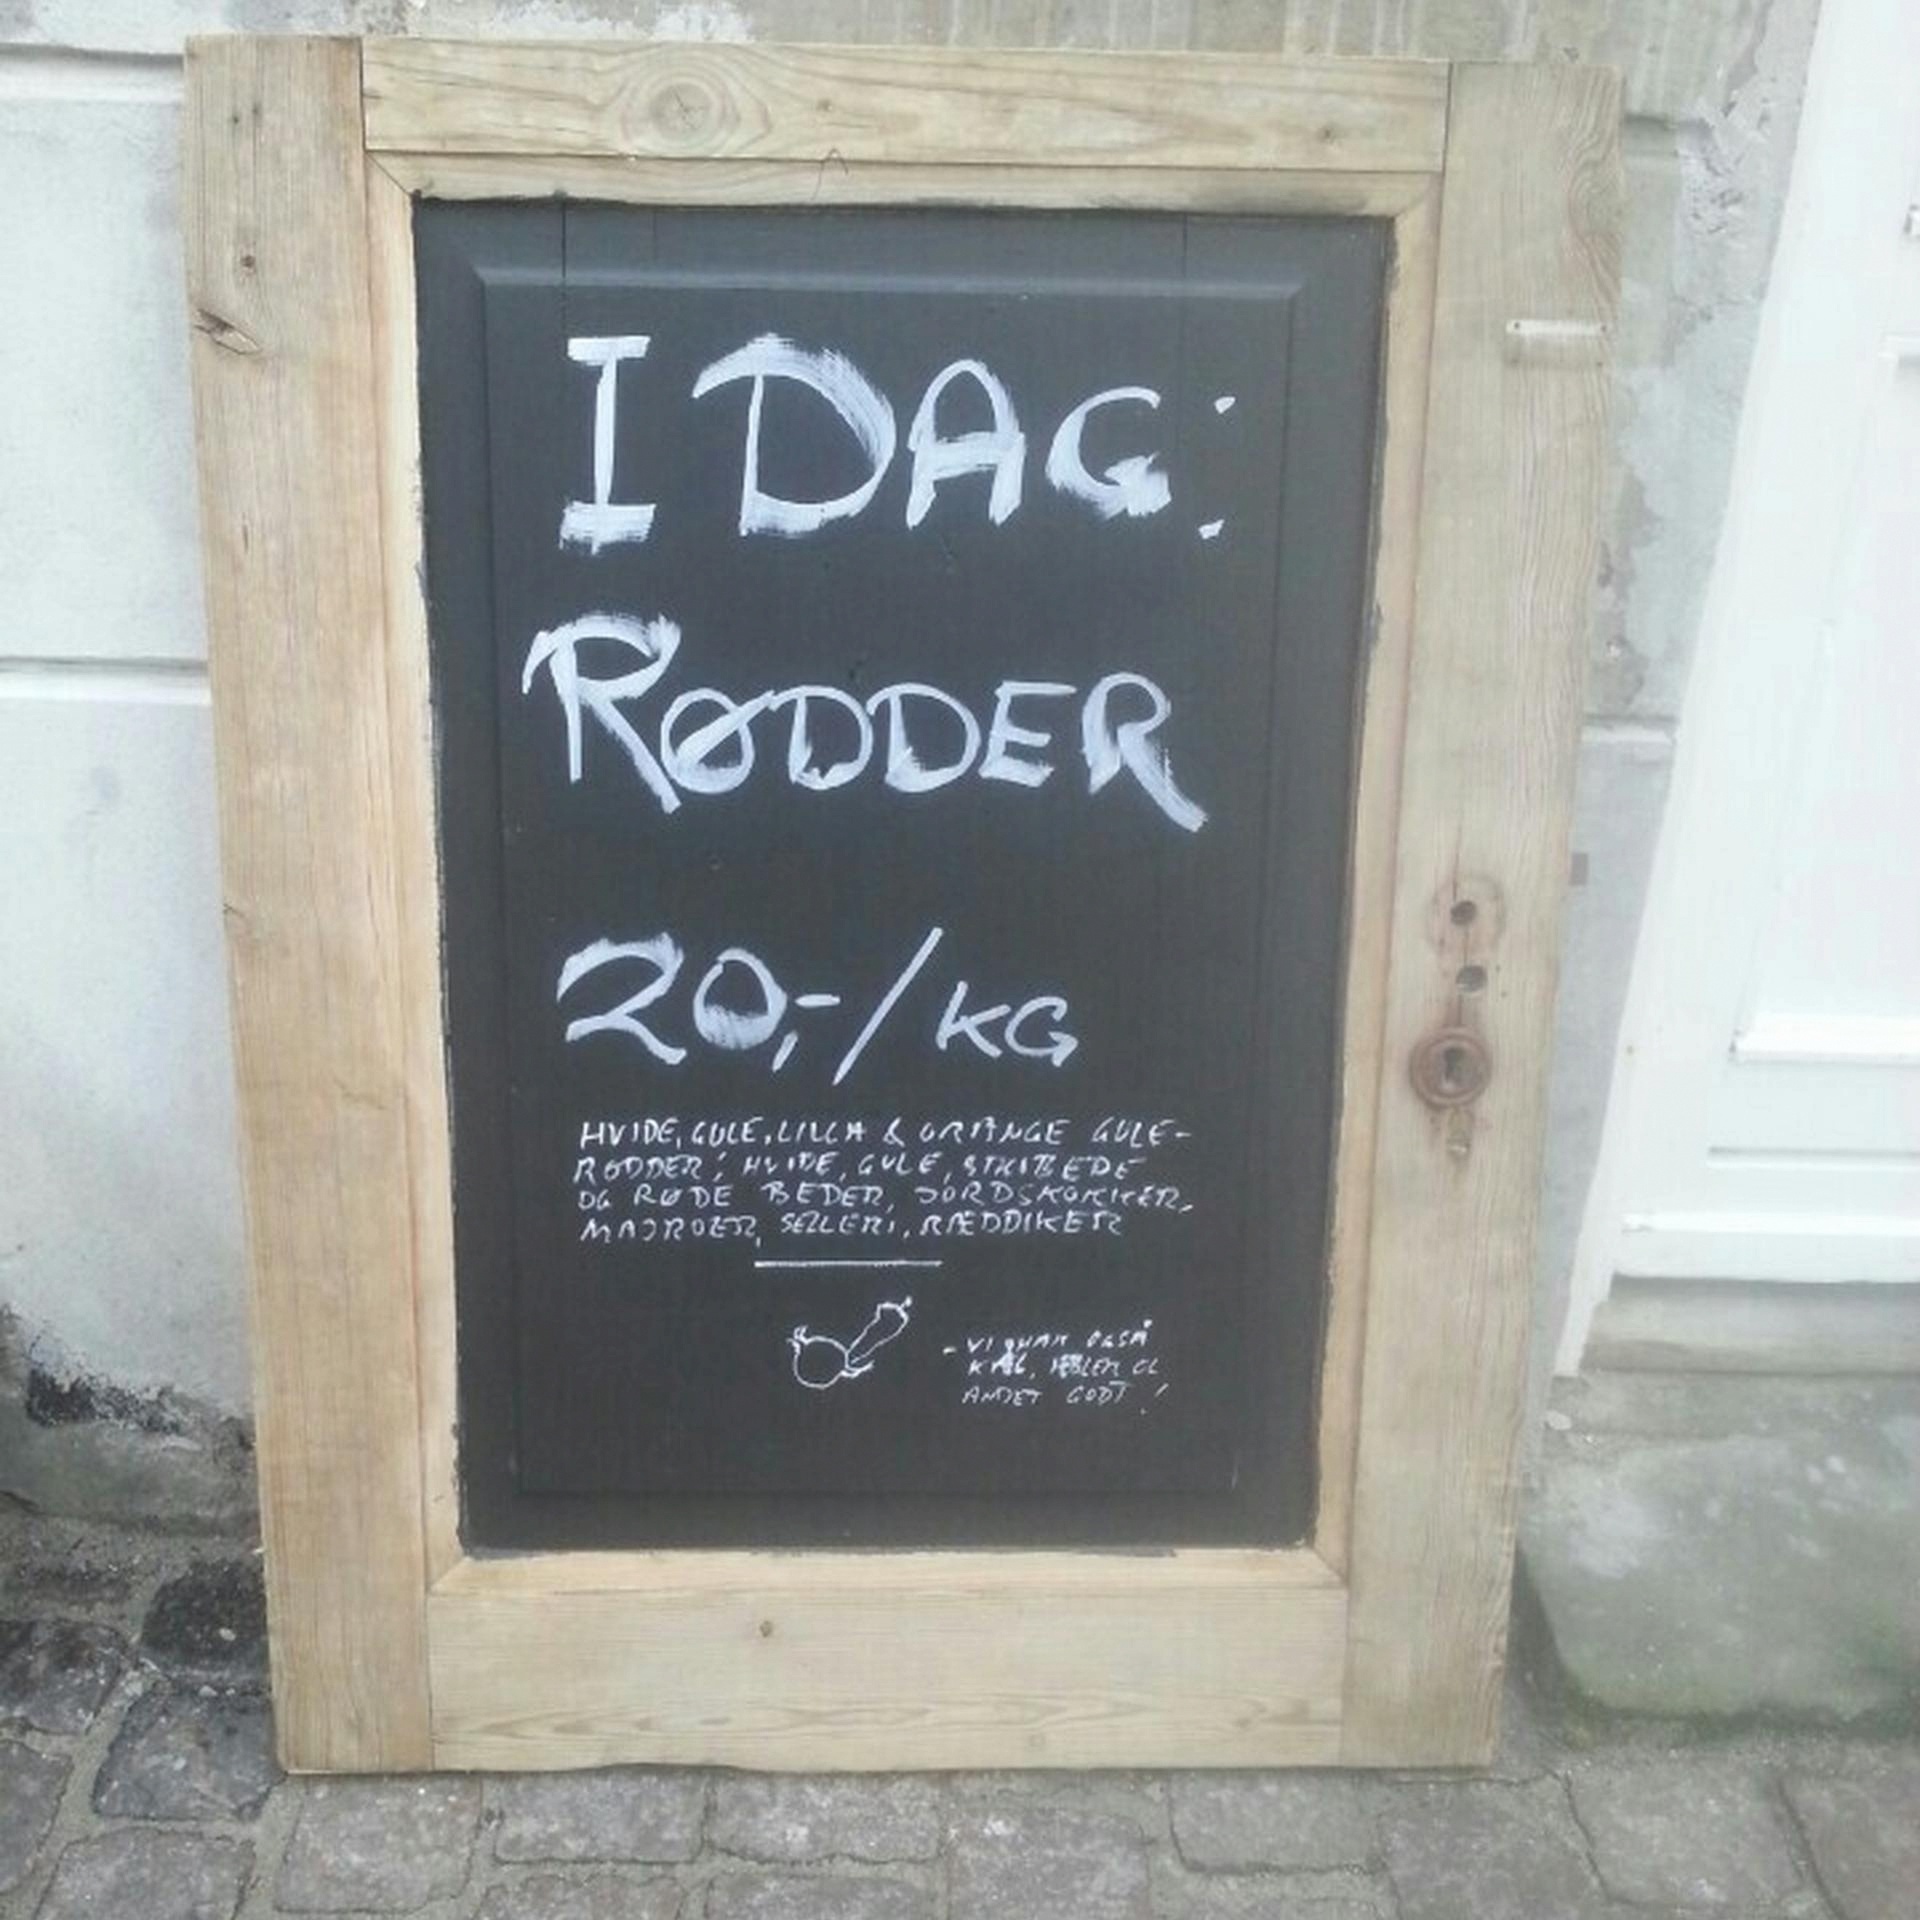 I DAG:
RØDDER
20,-/KG
HVIDE, GULE, LILLA & ORANGE GULE-
RØDDER; HVIDE, GULE, STRIBEDE
OG RØDE BEDER, JORDSKOKKER,
MAJROER, SELLERI, RÆDDIKER
- VI HAR OGSÅ
KÅL, ÆBLER OG
ANDET GODT!